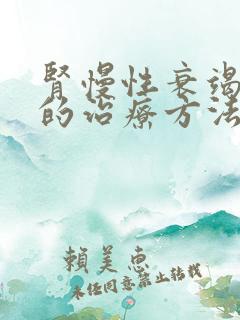 腎慢性衰竭
的治療方法
賴美惠
未經同意禁止轉載